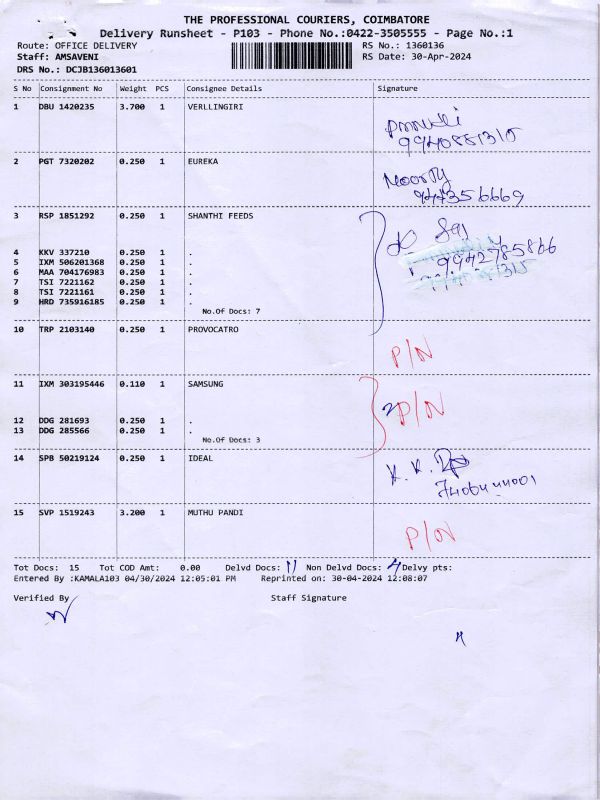 THE PROFESSIONAL COURIERS, COIMBATORE
Delivery Runsheet - P103 - Phone No.:0422-3505555 - Page No.:1
Route: OFFICE DELIVERY RS No.: 1360136
Staff: AMSAVENI RS Date: 30-Apr-2024
DRS No.: DCJB136013601
S No Consignment No Weight PCS Consignee Details Signature
1 DBU 1420235 3.700 1 VERLLINGIRI
9940881315
2 PGT 7320202 0.250 1 EUREKA
Moorthy
944356669
3 RSP 1851292 0.250 1 SHANTHI FEEDS
4 KKV 337210 0.250 1 .
5 IXM 506201368 0.250 1 .
6 MAA 704176983 0.250 1 .
7 TSI 7221162 0.250 1 .
8 TSI 7221161 0.250 1 .
9 HRD 735916185 0.250 1 .
9942785866
No.Of Docs: 7
10 TRP 2103140 0.250 1 PROVOCATRO
P/N
11 IXM 303195446 0.110 1 SAMSUNG
P/N
12 DDG 281693 0.250 1 .
13 DDG 285566 0.250 1 .
No.Of Docs: 3
14 SPB 50219124 0.250 1 IDEAL
K. K.
15 SVP 1519243 3.200 1 MUTHU PANDI
P/N
Tot Docs: 15 Tot COD Amt: 0.00 Delvd Docs: 11 Non Delvd Docs: 4 Delvy pts:
Entered By :KAMALA103 04/30/2024 12:05:01 PM Reprinted on: 30-04-2024 12:08:07
Verified By Staff Signature